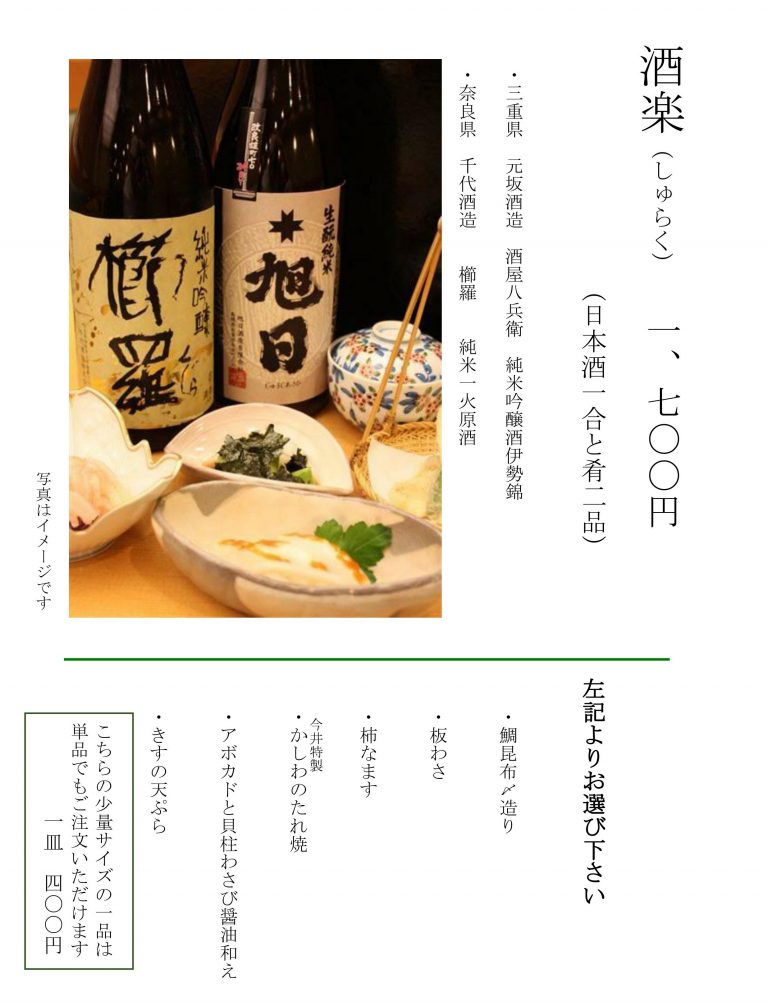 酒楽(しゅらく) 一、七〇〇円
(日本酒一合と肴二品)
・三重県 元坂酒造 酒屋八兵衛 純米吟醸酒伊勢錦
・奈良県 千代酒造 櫛羅 純米一火原酒
生酛純米
旭日
じゅうじあさひ
純米吟醸
櫛羅
くじら
写真はイメージです
左記よりお選び下さい
・鯛昆布〆造り
・板わさ
・柿なます
今井特製
・かしわのたれ焼
・アボカドと貝柱わさび醤油和え
・きすの天ぷら
こちらの少量サイズの一品は
単品でもご注文いただけます
一皿 四〇〇円